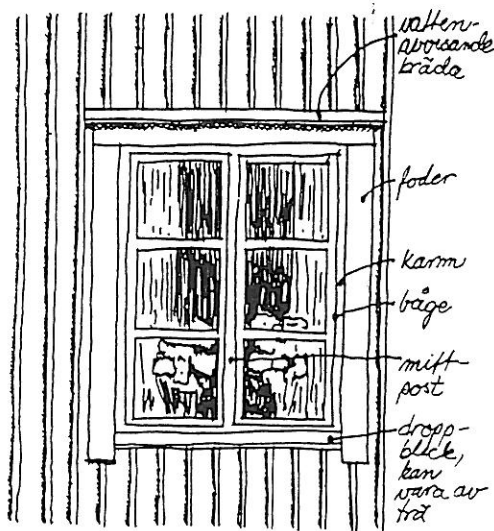 vatten-
avvisande
bräda
foder
karm
båge
mitt-
post
dropp-
bleck,
kan
vara av
trä